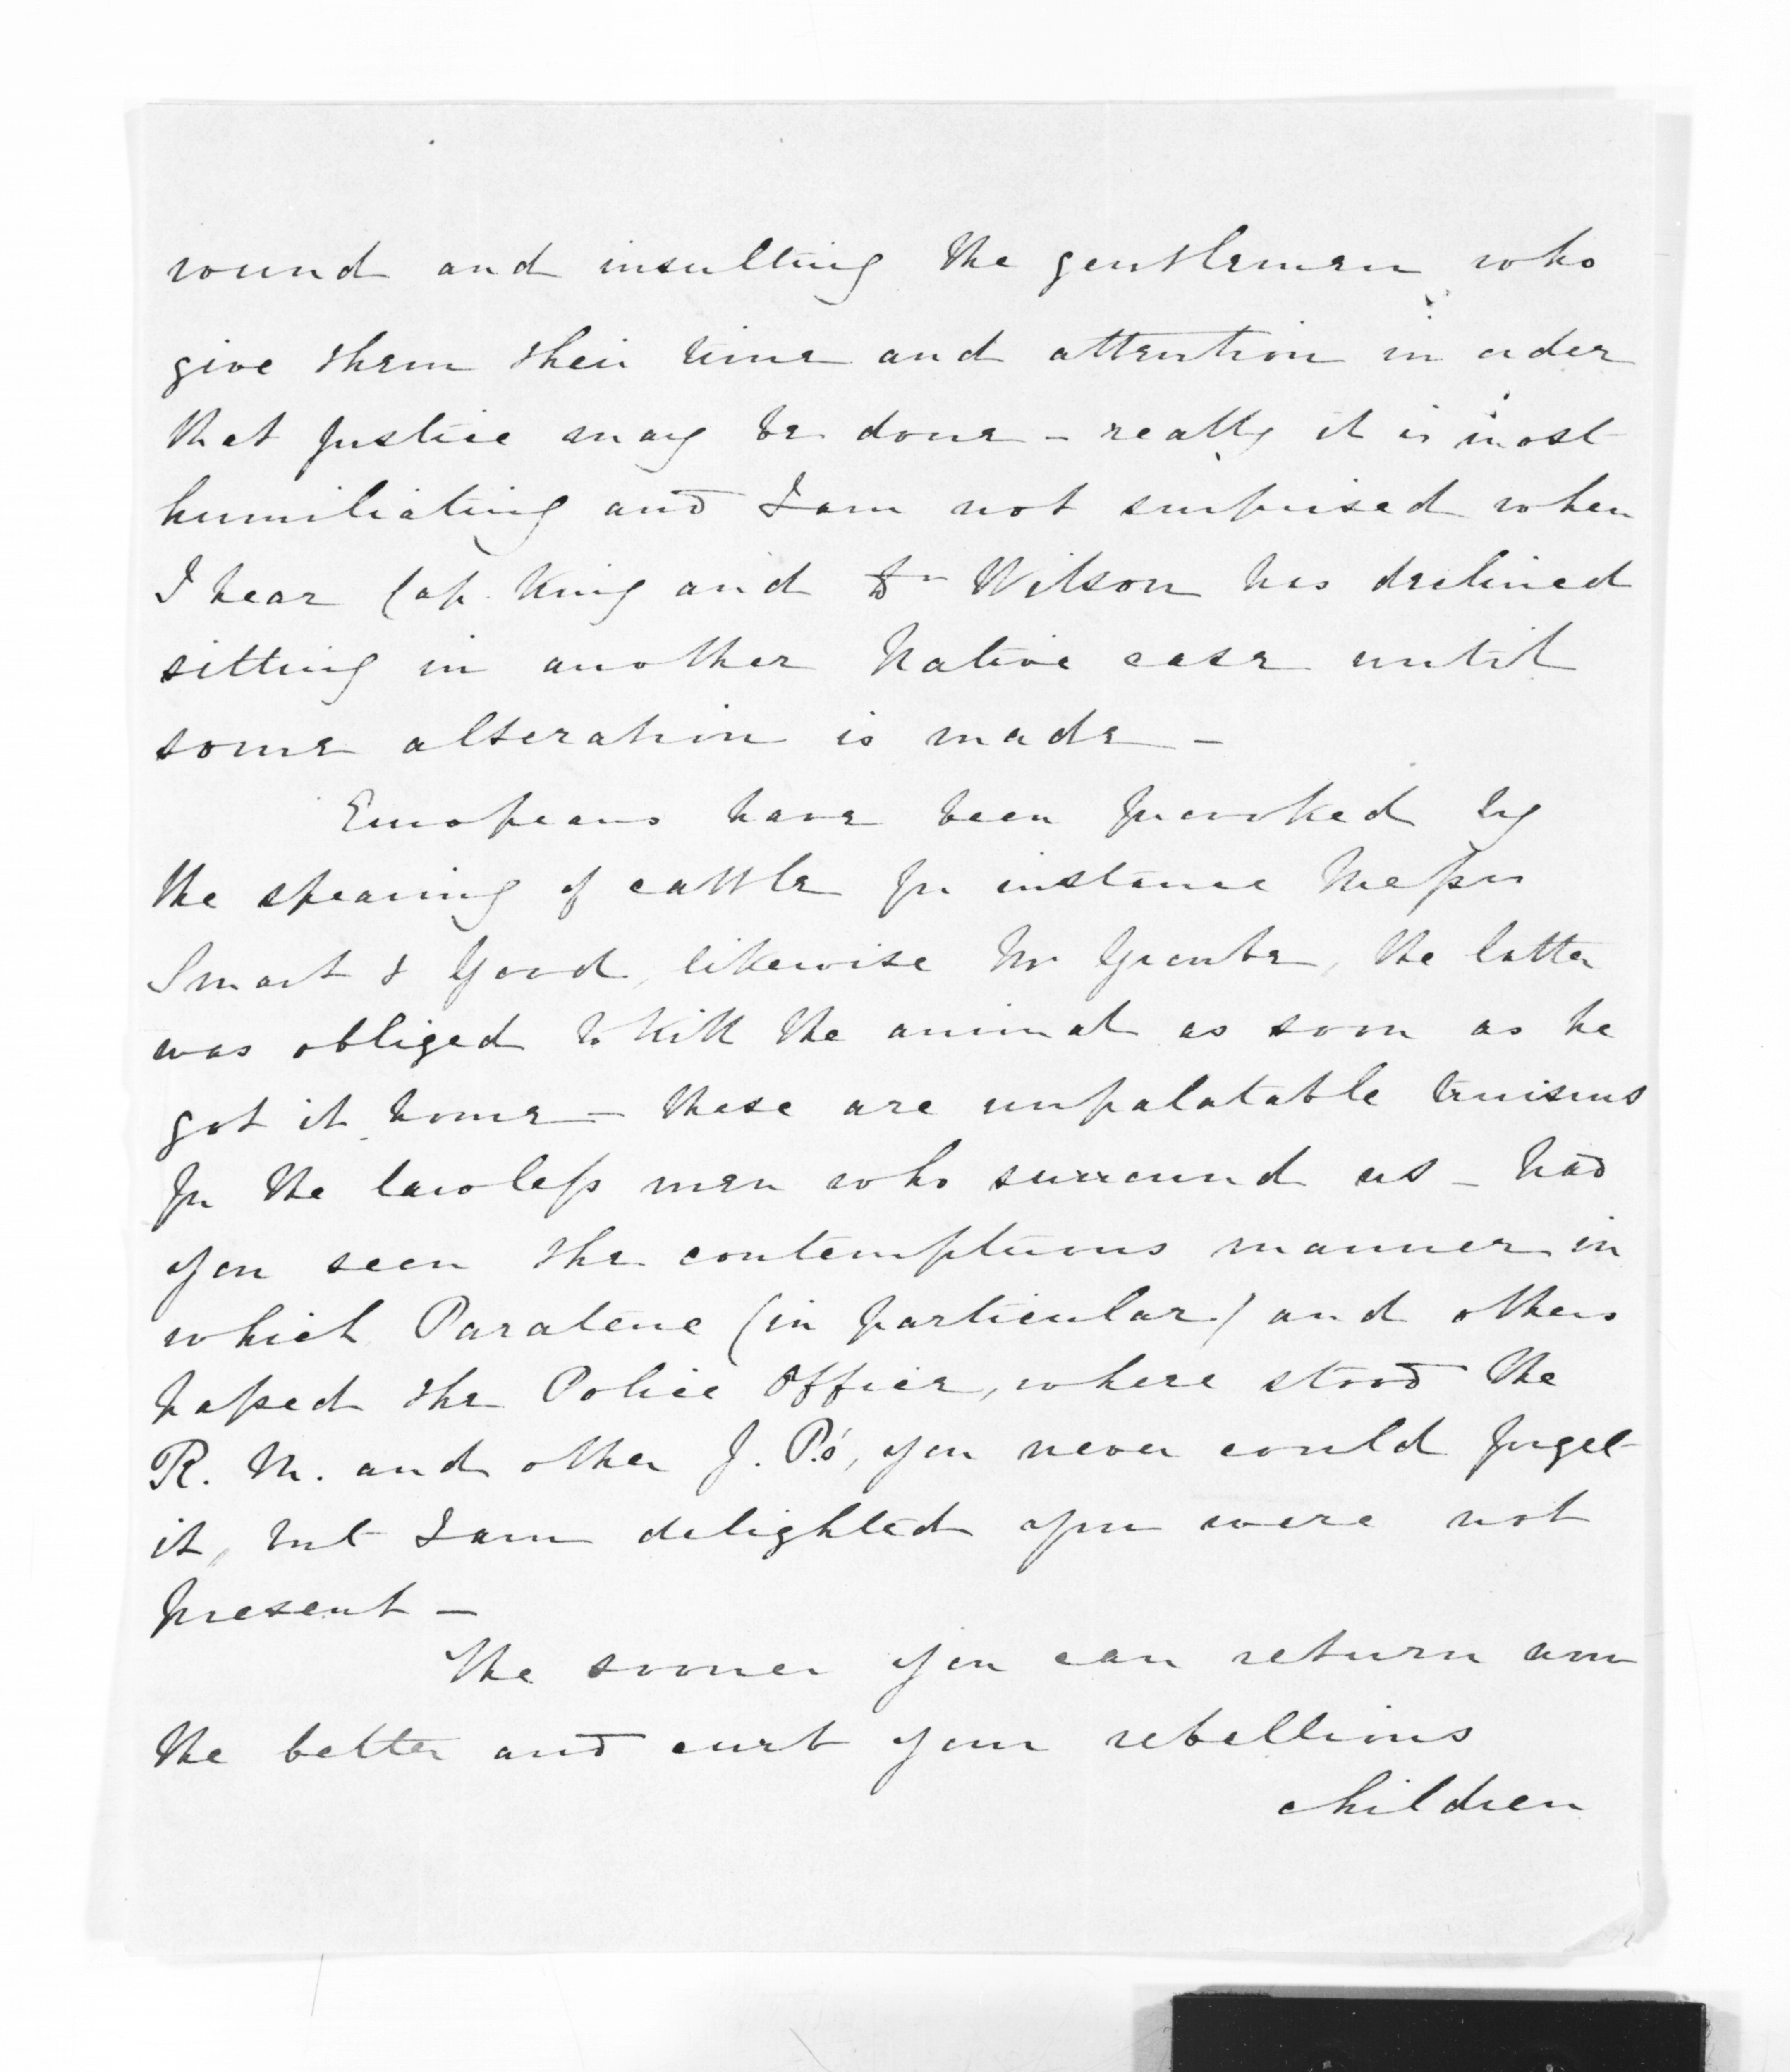 round and insulting the gentlemen who
give them their time and attention in order
that justice may be done - really it is most
humiliating and I am not surprised when
I hear Cap. King and Dr Wilson has declined
sitting in another Native case until
some alteration is made -
Europeans have been provoked by
the spearing of cattle for instance Messrs
Smart & Good, likewise Mr , the latter
was obliged to kill the animal as soon as he
got it home - these are unpalatable truisms
for the lawless men who surround us - had
you seen the contemptuous manner in
which Paratene (in particular) and others
passed the Police Office, where stood the
R. M. and other J. P.s, you never could forget
it, but I am delighted you were not
present -
The sooner you can return
the better and curb your rebellious
children